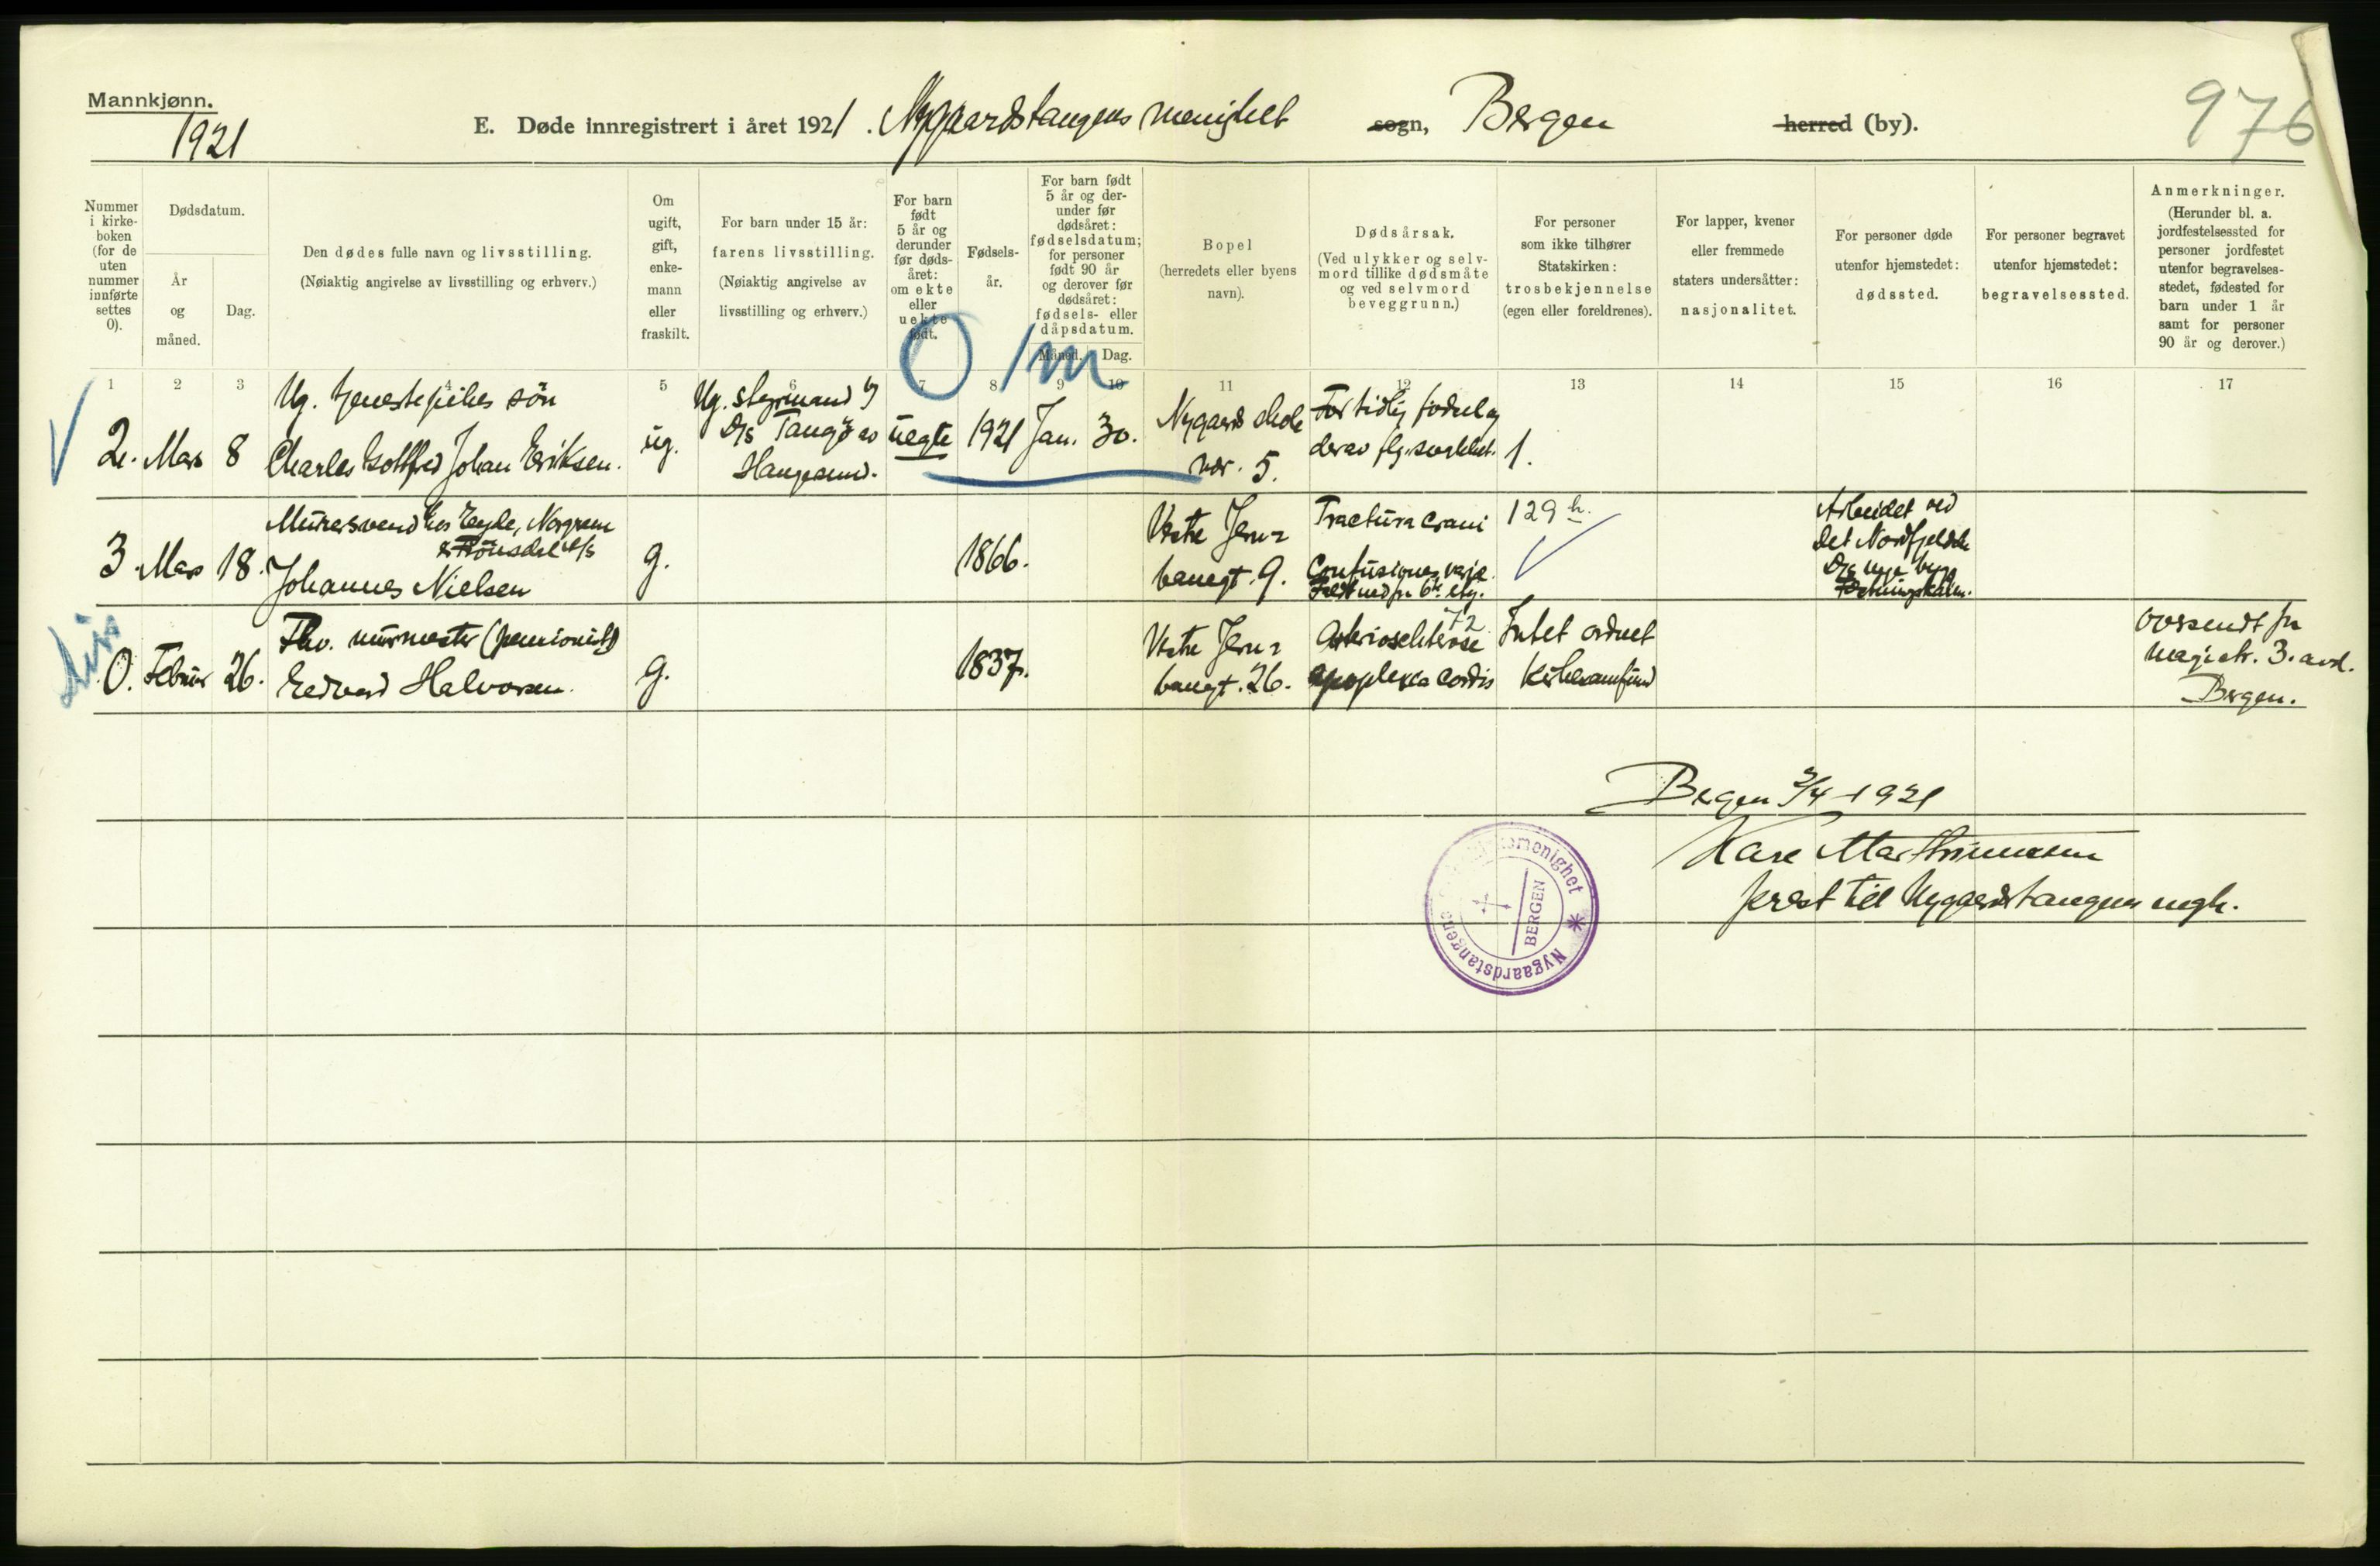 Mannkjønn.
1921
E. Døde innregistrert i året 1921. Nygaardstangens menighet sogn, Bergen herred (by).
976
Nummer i kirkeboken (for de uten nummer innførte settes 0).
Dødsdatum.
År og måned.
Dag.
Den dødes fulle navn og livsstilling.
(Nøiaktig angivelse av livsstilling og erhverv.)
Om ugift, gift, enkemann eller fraskilt.
For barn under 15 år:
farens livsstilling.
(Nøiaktig angivelse av livsstilling og erhverv.)
For barn født 5 år og derunder før dødsåret: om ekte eller uekte født.
Fødselsår.
For barn født 5 år og derunder før dødsåret: fødselsdatum; for personer født 90 år og derover før dødsåret: fødsels- eller dåpsdatum.
Måned. Dag.
Bopel
(herredets eller byens navn).
Dødsårsak.
(Ved ulykker og selvmord tillike dødsmåte og ved selvmord beveggrunn.)
For personer som ikke tilhører Statskirken: trosbekjennelse (egen eller foreldrenes).
For lapper, kvener eller fremmede staters undersåtter: nasjonalitet.
For personer døde utenfor hjemstedet: dødssted.
For personer begravet utenfor hjemstedet: begravelsessted.
Anmerkninger.
(Herunder bl. a. jordfestelsessted for personer jordfestet utenfor begravelsesstedet, fødested for barn under 1 år samt for personer 90 år og derover.)
0 1m
1 2 3 4 5 6 7 8 9 10 11 12 13 14 15 16 17
Ug. tjenestepikes søn
2. Mars 8 Charles Gottfred Johan Eriksen.
ug.
Ug. styrmand
D/S Tangö av
Haugesund.
uegte
1921 Jan. 30.
Nygaards
ndr. 5.
For tidlig fødsel og
derav flg. svakhet.
1.
Murersvend hos Eyde, Norgreen
3. Mars 18. Johannes Nielsen
g.
1866.
Vestre Jern=
banegt. 9.
Fractura crani
Faldt ned fra 6te etg.
129 h.
Arbeidet ved
Det Nordfjeldske
D/S nye bygg
Festningskaien.
Fhv. murmester (pensionist)
0. Februar 26. Edvard Halvorsen.
g.
1837.
Vestre Jern=
banegt. 26.
72
Arteriosklerose
apoplexia cordis
Intet ordnet
kirkesamfund
oversendt fra
magistr. 3. avd.
Bergen.
Bergen 2/4 1921
prest til Nygaardstangens mgh.
Nygaardstangens menighet
BERGEN